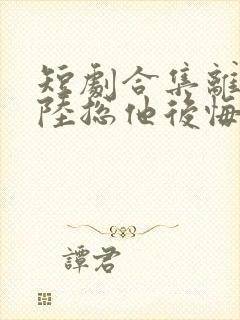 短劇合集離
陸總他後悔
譚君